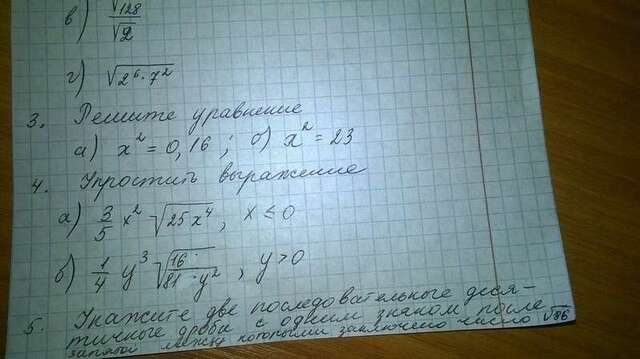 в) √128/√2
г) √2⁶·7²
3. Решите уравнение
а) x² = 0,16 ; б) x² = 23
4. Упростить выражение
а) 3/5 x² √25x⁴, x ≤ 0
б) 1/4 y³ √16/81·y², y > 0
5. Укажите две последовательные деся-
тичные дроби с одним знаком после
запятой между которыми заключено число √86